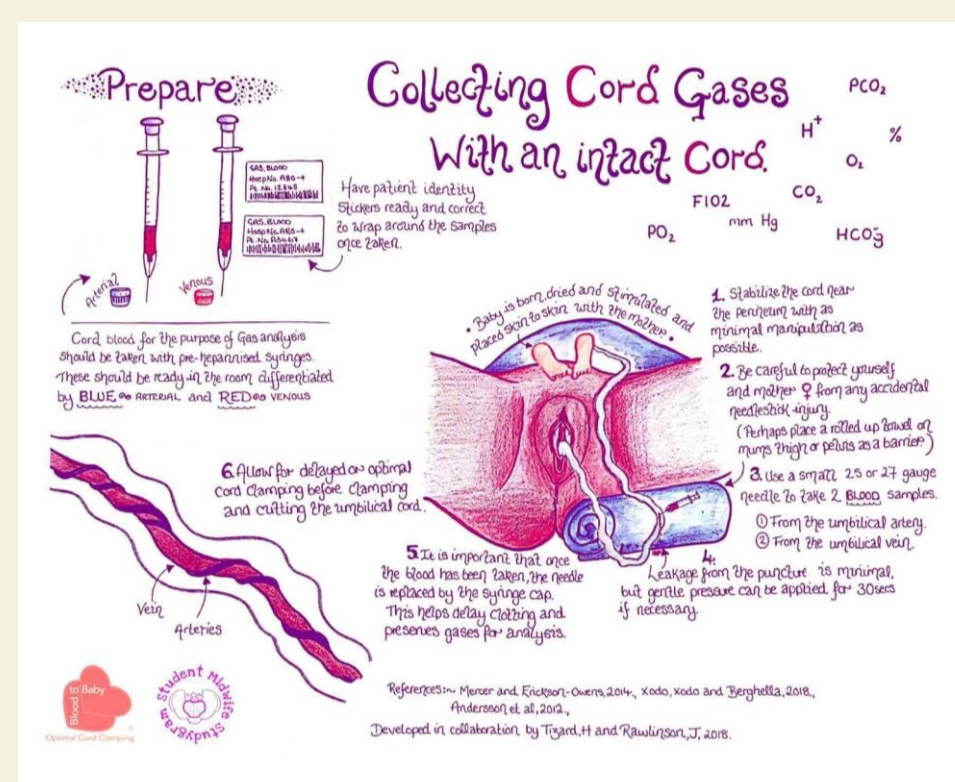 Prepare
Collecting Cord Gases
With an intact Cord.
PCO₂
H⁺
%
O₂
CO₂
FIO2
mm Hg
PO₂
HCO₃
GAS, BLOOD
GAS, BLOOD
Have patient identity
Stickers ready and correct
to wrap around the samples
once taken.
Arterial
Venous
Cord blood for the purpose of Gas analysis
should be taken with pre-heparinised syringes.
These should be ready in the room differentiated
by BLUE ARTERIAL and RED VENOUS
• Baby is born, dried and stimulated and
placed skin to skin with the mother •
1. Stabilize the cord near
the perineum with as
minimal manipulation as
possible.
2. Be careful to protect yourself
and mother ♀ from any accidental
needlestick injury.
(Perhaps place a rolled up towel on
mums thigh or pelvis as a barrier)
3. Use a small 25 or 27 gauge
needle to take 2 BLOOD samples.
① From the umbilical artery.
② From the umbilical vein.
4.
Leakage from the puncture is minimal,
but gentle pressure can be applied for 30secs
if necessary.
5. It is important that once
the blood has been taken, the needle
is replaced by the syringe cap.
This helps delay clotting and
preserves gases for analysis.
6. Allow for delayed or optimal
cord clamping before clamping
and cutting the umbilical cord.
Vein
Arteries
Blood
to Baby
Optimal Cord Clamping
Student Midwife Studygram
References:~ Mercer and Erickson-Owens, 2014., Xodo, xodo and Berghella, 2018.,
Andersson et al, 2012.,
Developed in collaboration by Tizard, H and Rawlinson, J. 2018.